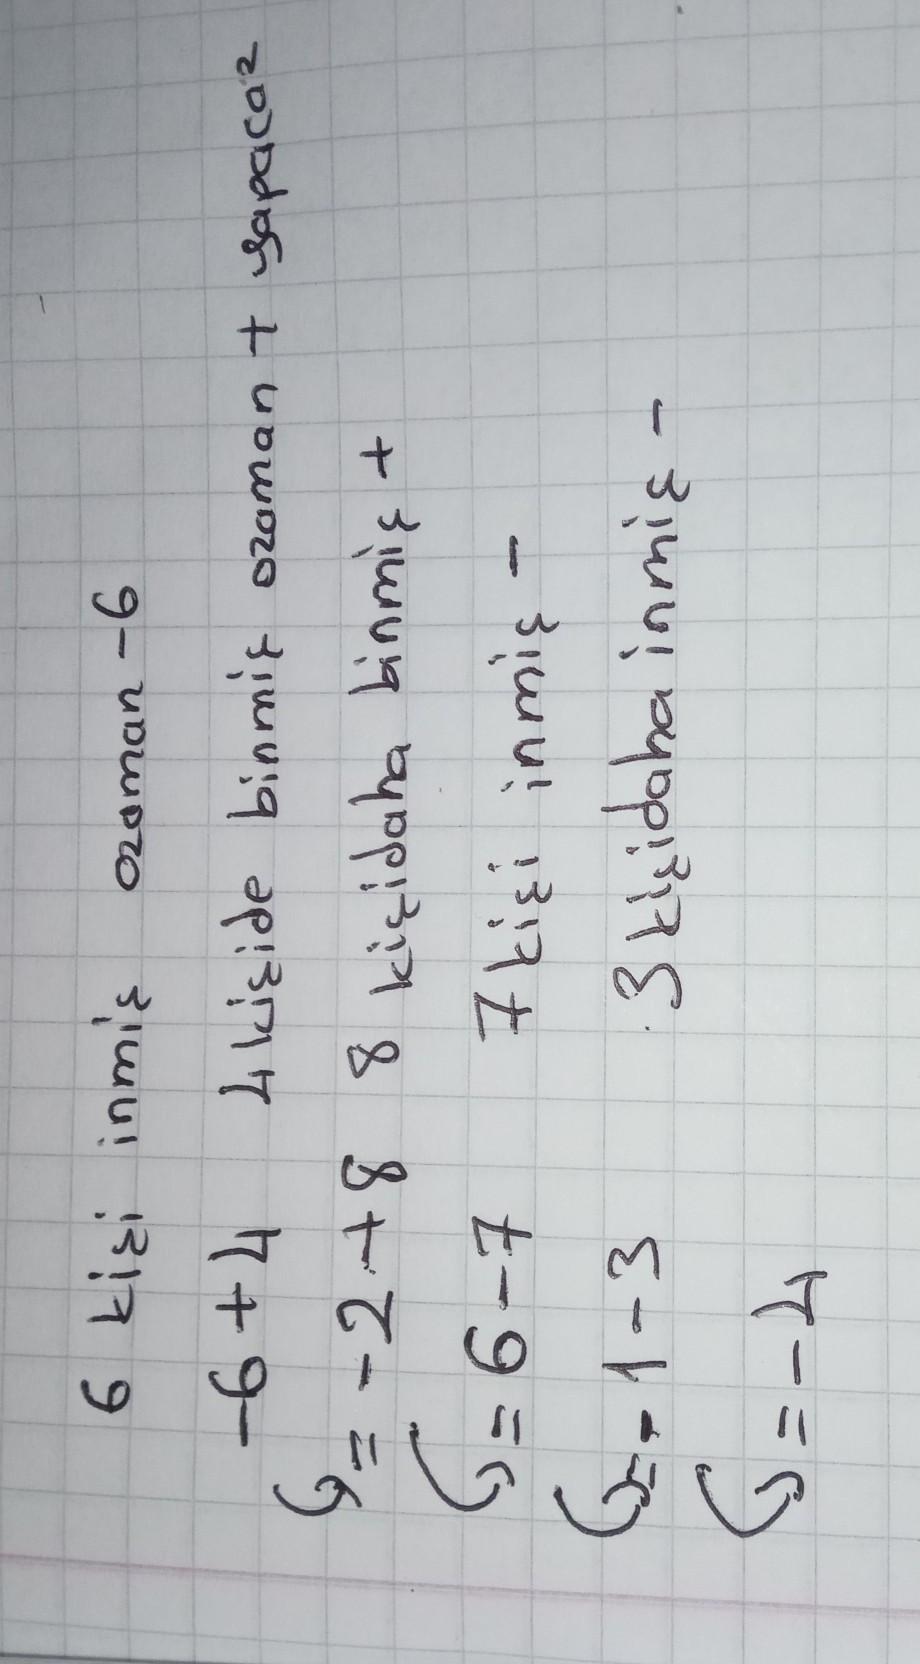 6 kişi inmiş ozaman -6
-6+4 4 kişide binmiş ozaman + yapacaz
= -2+8 8 kişidaha binmiş +
= 6-7 7 kişi inmiş -
= -1-3 3 kişidaha inmiş -
= -4